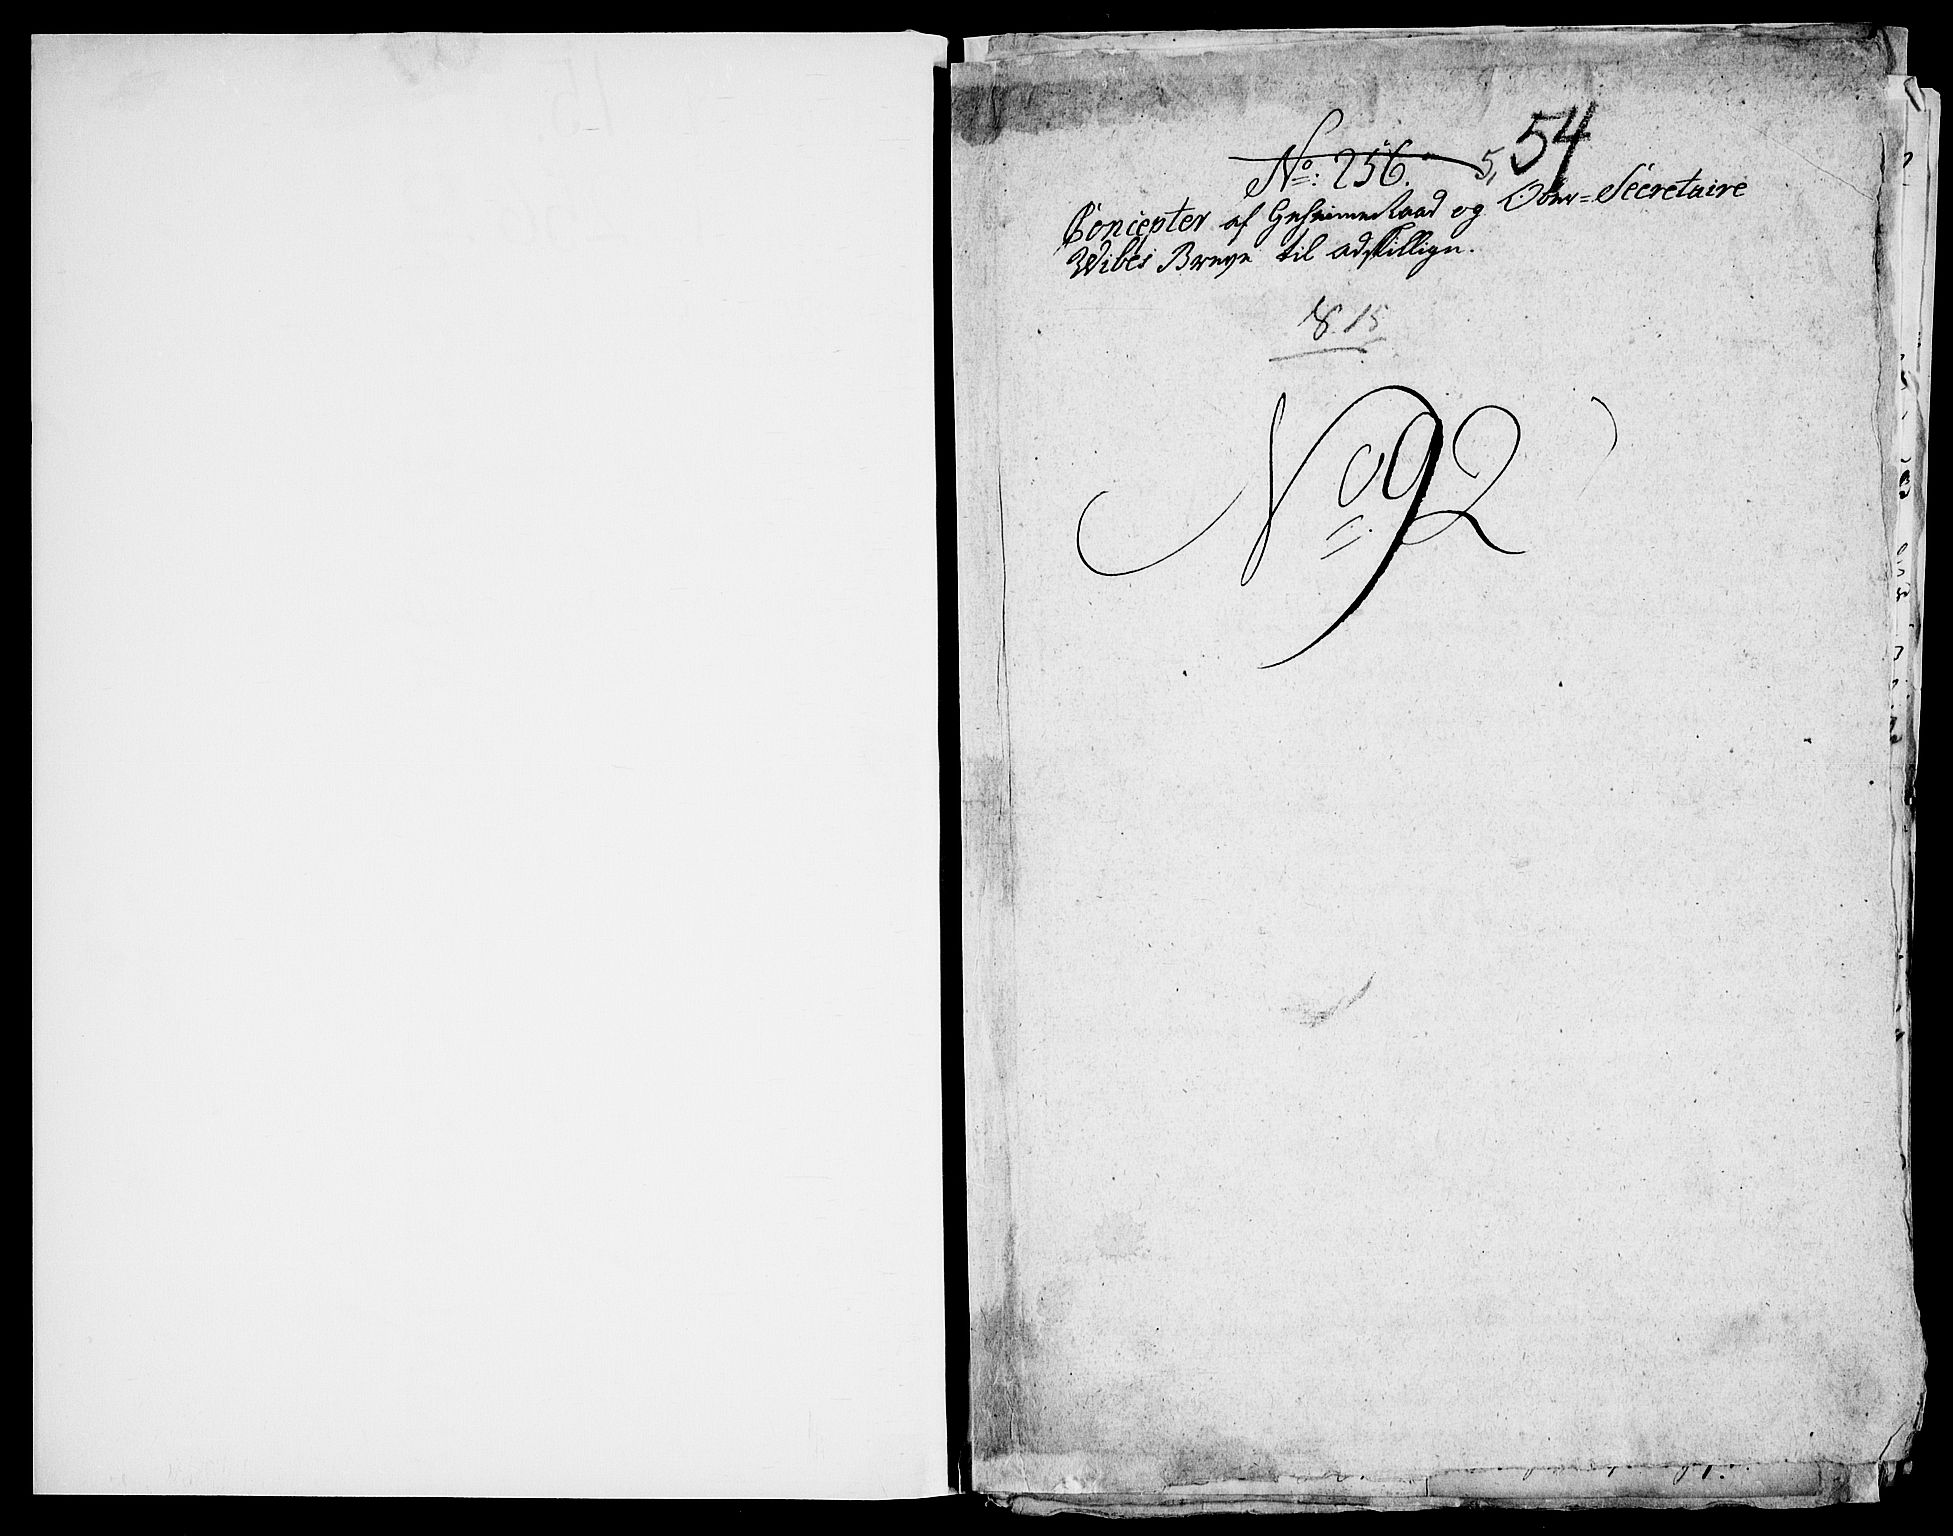 No: 256. 5, 54
Concepter af Geheimeraad og Ober=Secretaire
Wibes Breve til adskillige.
8 15
No 92